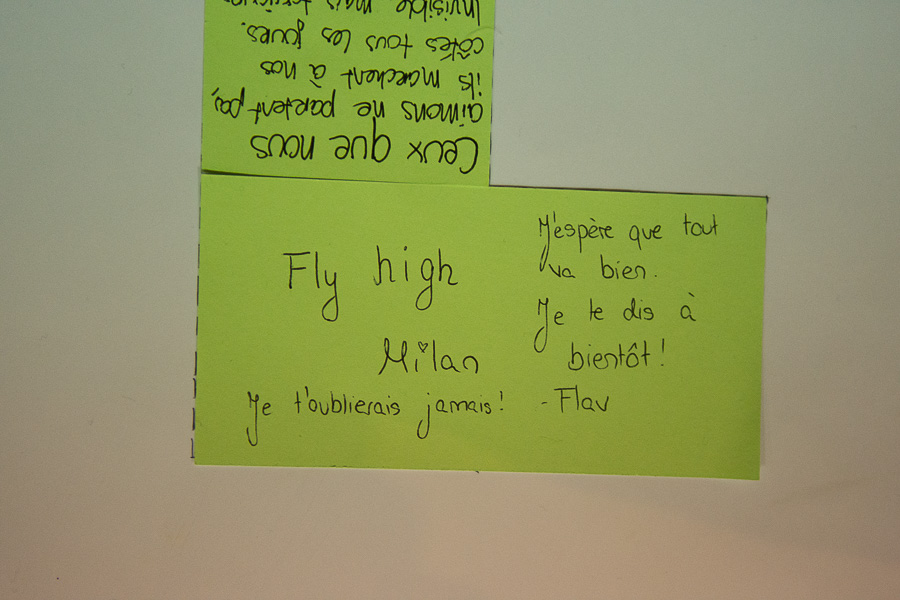 Ceux que nous
aimons ne partent pas,
ils marchent à nos
côtés tous les jours.
Invisible mais
Fly high
Milan
Je t'oublierais jamais!
J'espère que tout
va bien.
Je te dis à
bientôt!
-Flav